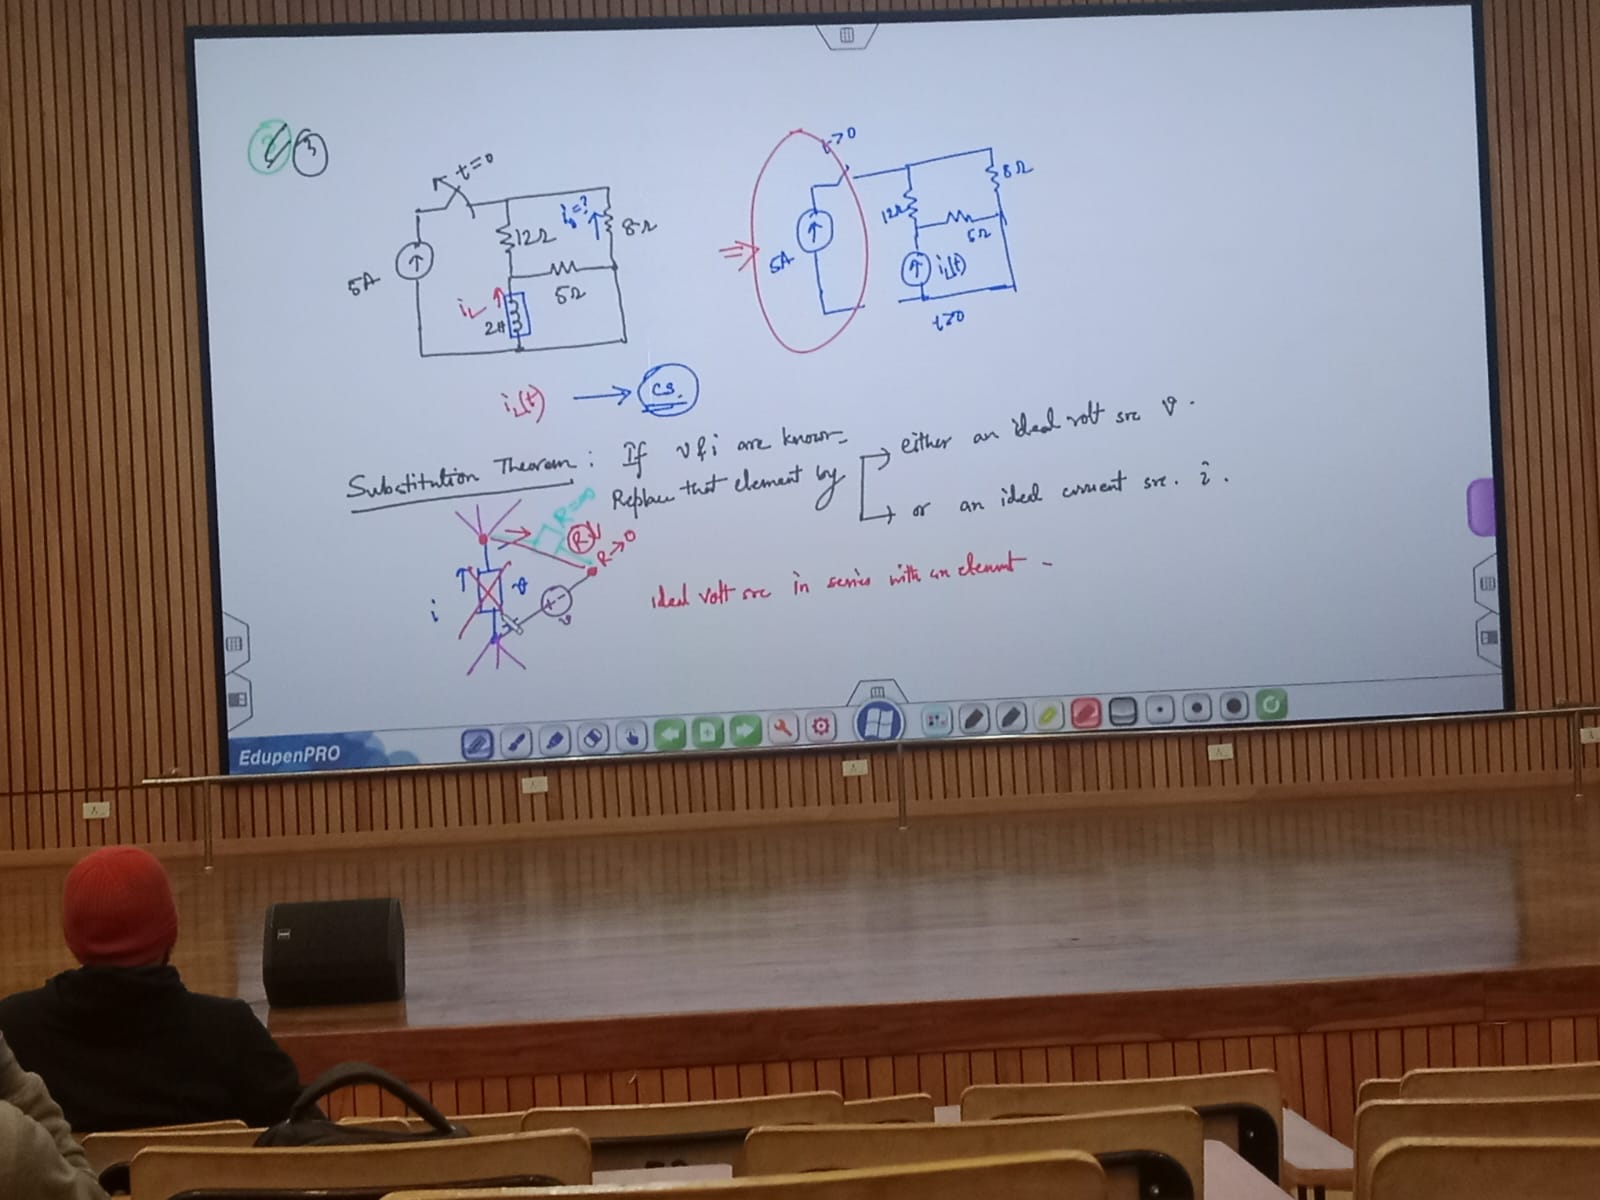 3
t=0
5A
12Ω
i₈=?
8Ω
5Ω
iL
2H
t>0
5A
12Ω
8Ω
5Ω
iL(t)
t>0
iL(t) → CS.
Substitution Theorem : If v & i are known
Replace that element by
either an ideal volt src v.
or an ideal current src. i.
R=∞
R
R→0
i
v
+ -
v
ideal volt src in series with an element
EdupenPRO